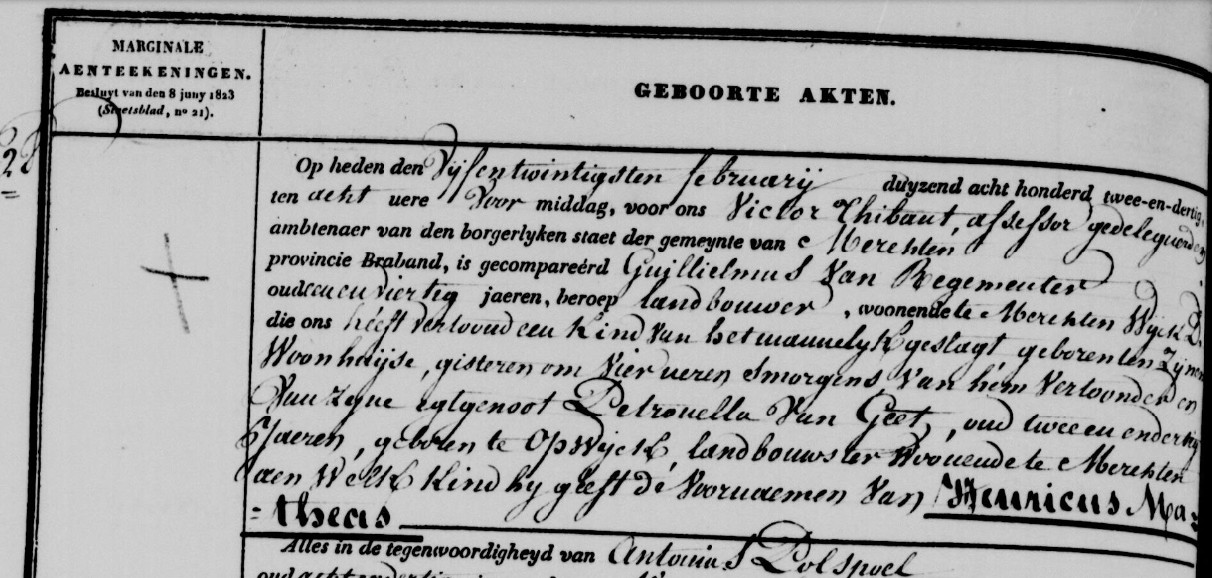 MARGINALE
AENTEEKENINGEN.
Besluyt van den 8 juny 1823
(Staetsblad, nº 21).
GEBOORTE AKTEN.
Op heden den Vijfentwintigsten februarij duyzend acht honderd twee-en-dertig,
ten acht uere Voor middag, voor ons Victor Thibaut, assessor gedelegueerden
ambtenaer van den borgerlyken staet der gemeynte van Merchten
provincie Braband, is gecompareérd Guillielmus Van Regemeuter
oud eenenviertig jaeren, beroep landbouwer, woonende te Merchten Wyck D.
die ons heeft vertoond een Kind van het mannelyk geslagt geboren ten zijnen
Woonhuijse, gisteren om vier ueren smorgens van hem Vertoonder en
Van zyne egtgenoot Petronella Van Geet, oud tweeen endertig
Jaeren, geboren te Opwijck, landbouwster Woonende te Merchten
aen Welk Kind hy geeft de Voornaemen Van Henricus Ma-
=theas
Alles in de tegenwoordigheyd van Antonius Polspoel
oud achtendertig